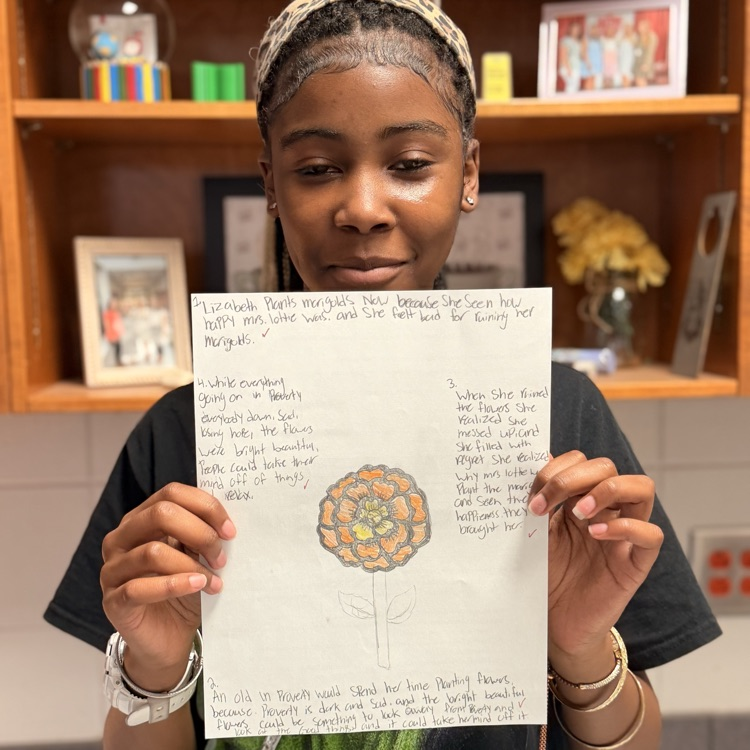 1. Lizabeth Plants marigolds Now because She Seen how
happy mrs. lottie was. and She felt bad for ruining her
marigolds.
4. While everything
going on in Proverty
everybody down, sad,
losing hope, the flowers
were bright beautiful,
People could take their
mind off of things,
relax.
3.
When She ruined
the flowers She
realized She
messed up, and
She filled with
regret She realized
why mrs lottie
Plant the
and Seen the
happieness they
brought her.
2.
An old in Proverty would Spend her time Planting flowers,
because. Proverty is dark and Sad. and the bright beautiful
flowers could be something to look from Proverty and
look at the Good things and it could take her mind off it